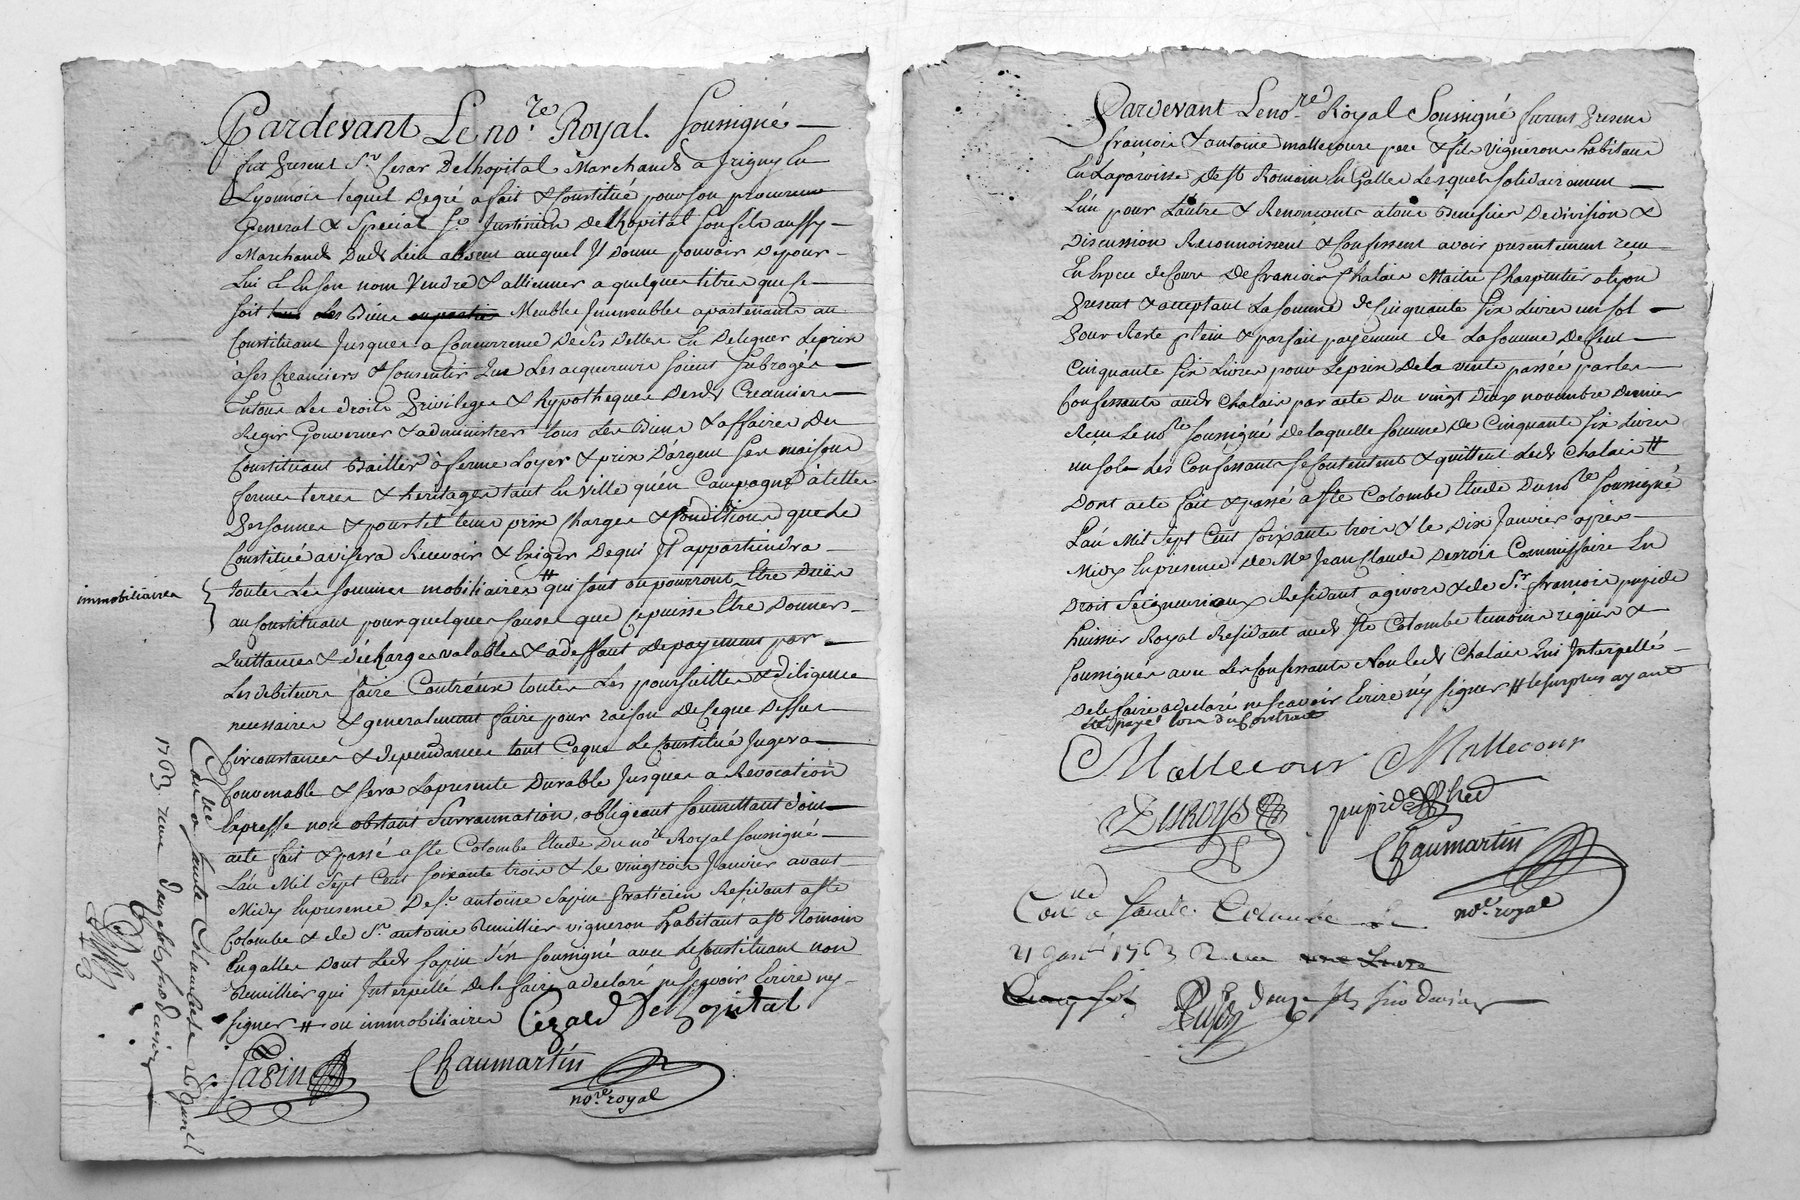 Pardevant Le no.re Royal. Soussigné
fut Present Sr Cesar Delhopital Marchand a Irigny En
Lyonnois lequel Degré a fait & Constitué pour son procureur
General & Special Sr Justinien Delhopital son fils aussy
Marchand Dud. Lieu absent auquel Il Donne pouvoir De pour
Lui & En son nom Vendre & alliener a quelques titres que ce
soit Les Biens Meubles Immeubles apartenants au
Constituant Jusques a Concurrence De ses Dettes En Deleguer Le prix
à ses Creanciers & Consentir Que Les acquereurs soient subrogés
En tous Les droits Privileges & hypotheques Desd. Creanciers
Regir Gouverner & administrer tous Les Biens & affaires Du
Constituant Bailler à ferme Loyer & prix D'argent ses maisons
fermes terres & heritages tant En Ville qu'en Campagne à telles
Personnes & pour tel tems prix Charges & Conditions que Le
Constitué avisera Recevoir & Exiger De qui Il appartiendra
toutes Les sommes mobiliaires # qui sont ou pourront Etre Duës
immobiliaires
au Constituant pour quelques Causes que Ce puisse Etre Donner
Quittances & décharges valables & a deffaut De payement par
Les debiteurs faire Contr'eux toutes Les poursuittes & diligences
necessaires & generalement faire pour raison De Ce que Dessus
Circonstances & dependances tout Ceque Le Constitué Jugera
Convenable & sera La presente Durable Jusques a Revocation
Expresse non obstant Surrannation, obligeant soumettant Dont
acte fait & passé a Ste Colombe Etude Du nore Royal soussigné
L'an Mil Sept Cent soixante trois & Le vingt trois Janvier avant
Midy En presence De Sr antoine Sapin Praticien Residant a Ste
Colombe & de Sr antoine Remillier vigneron habitant a St Romain
En galles Dont Led. Sapin s'est soussigné avec Le Constituant non
Remillier qui Interpellé De le faire a declaré ne sçavoir Ecrire ny
signer # ou immobiliaires Cézard Delhopital
Sapin Chaumartin
nore. royal
Con.lé a Sainte Colombe 26 Janv.
1763 reçu douze sols six deniers
Pardevant Le no.re Royal Soussigné furent Presens
françois & antoine mallecour pere & fils vignerons habitans
En La paroisse De St Romain En Galles Lesquels solidairement
L'un pour L'autre & Renonçants a tous Benefices De division &
Discussion Reconnoissent & Confessent avoir presentement reçu
En Especes de Cours De françois Chalais Maitre Charpentier a Lyon
Present & acceptant La somme de Cinquante six Livres un sol
Pour Reste plein & parfait payement de La somme De Cent
Cinquante six Livres pour Le prix De la vente passée par les
Confessants aud. Chalais par acte Du vingt Deux novembre Dernier
Reçu Le nore soussigné De laquelle somme De Cinquante six Livres
un sol Les Confessants se Contentent & quittent Led. Chalais #
Dont acte fait & passé a Ste Colombe Etude Du nore soussigné
L'an Mil Sept Cent soixante trois & le Dix Janvier après
Midy En presence De Me Jean Claude Desrois Commissaire En
Droit Seigneuriaux Residant a givors & de Sr. françois pupid
huissier Royal Residant aud. Ste Colombe temoins requis &
soussignés avec Les Confessants Non Led. Chalais Qui Interpellé
De le faire a declaré ne sçavoir Ecrire ny signer # Le surplus ayant
été payé lors du Contract
Mallecour Mallecour
DESROYS pupid
Chaumartin
nore. royal
Con.lé a Sainte Colombe le
21 Janv. 1763 Reçu
douze sols six deniers